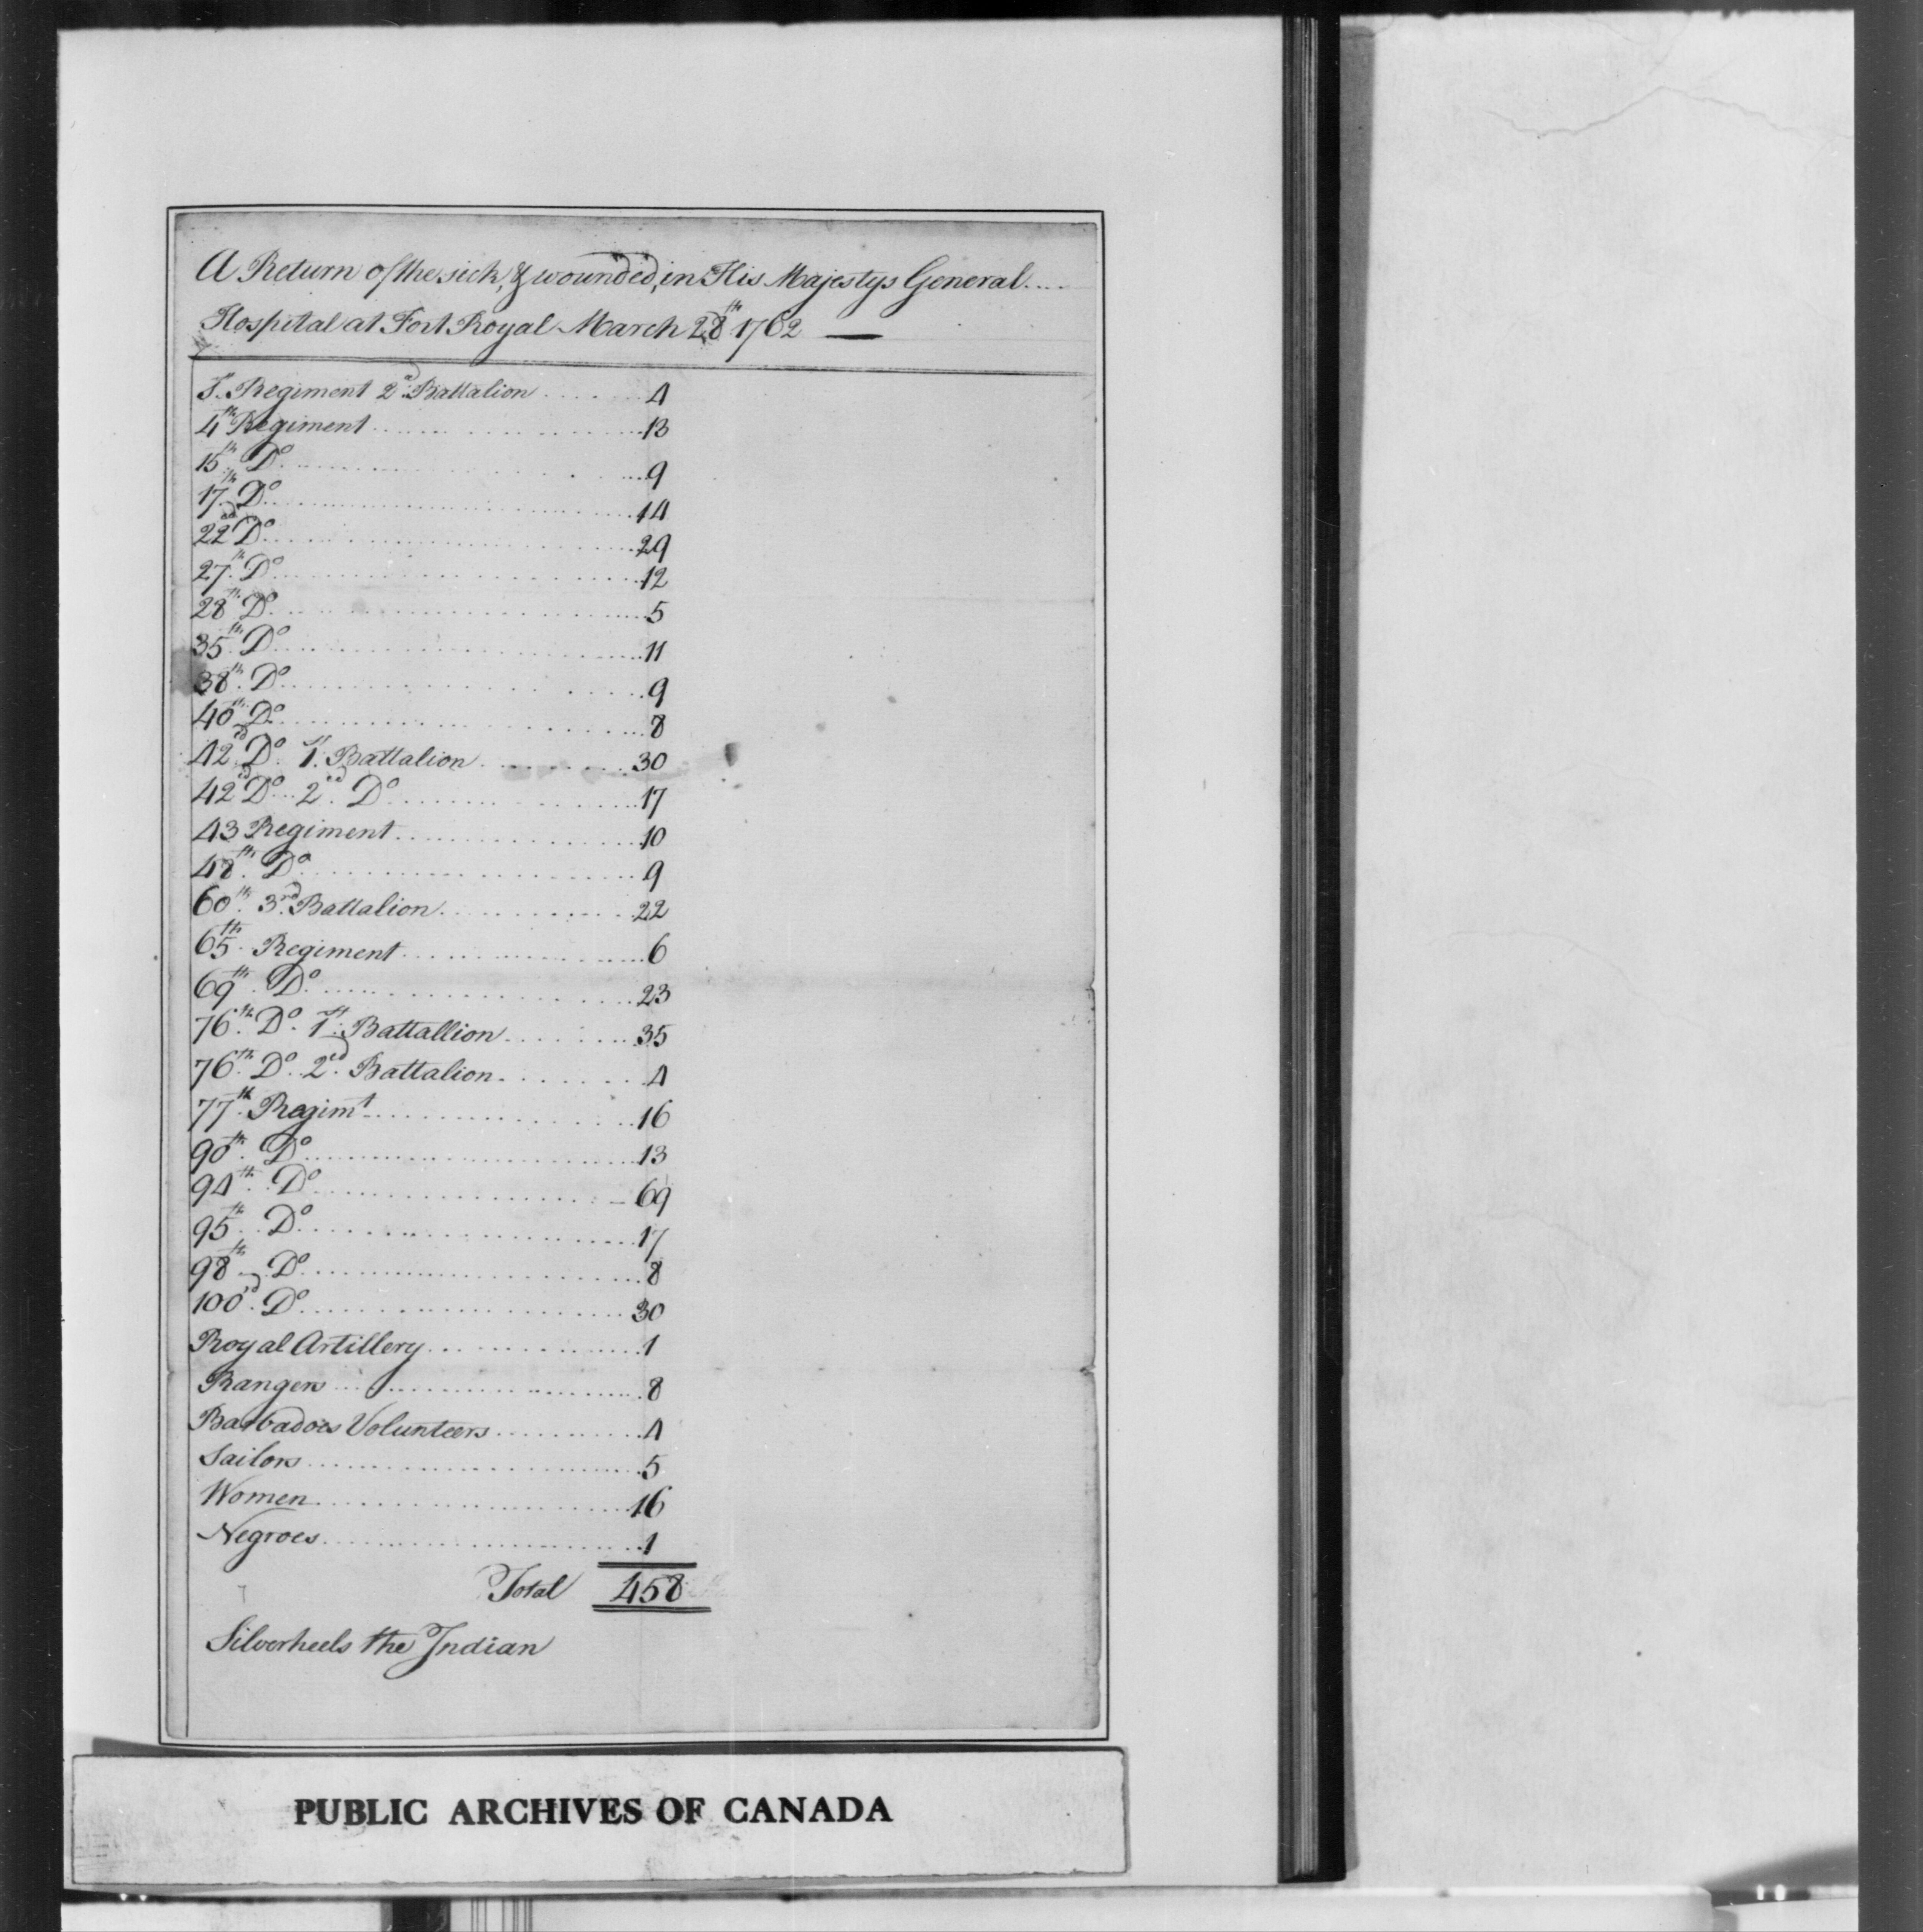 A Return of the sick, & wounded, in His Majestys General....
Hospital at Fort Royal March 28th 1762 —
1. Regiment 2d. Battalion ....... 4
4th Regiment ....... 13
15th Do ....... 9
17th Do ....... 14
22ed Do ....... 29
27th Do ....... 12
28th Do ....... 5
35th Do ....... 11
38th Do ....... 9
40th Do ....... 8
42ed Do 1st. Battalion ....... 30
42ed Do 2ed. Do ....... 17
43 Regiment ....... 10
48th Do ....... 9
60th. 3rd. Battalion ....... 22
65th. Regiment ....... 6
69th. Do ....... 23
76th. Do. 1st. Battallion ....... 35
76th. Do. 2ed. Battalion ....... 4
77th. Regimt ....... 16
90th. Do ....... 13
94th. Do ....... 69
95th. Do ....... 17
98th. Do ....... 8
100d. Do ....... 30
Royal Artillery ....... 1
Rangers ....... 8
Barbadoes Volunteers ....... 4
Sailors ....... 5
Women ....... 16
Negroes ....... 1
Total 458
Silverheels the Indian
PUBLIC ARCHIVES OF CANADA